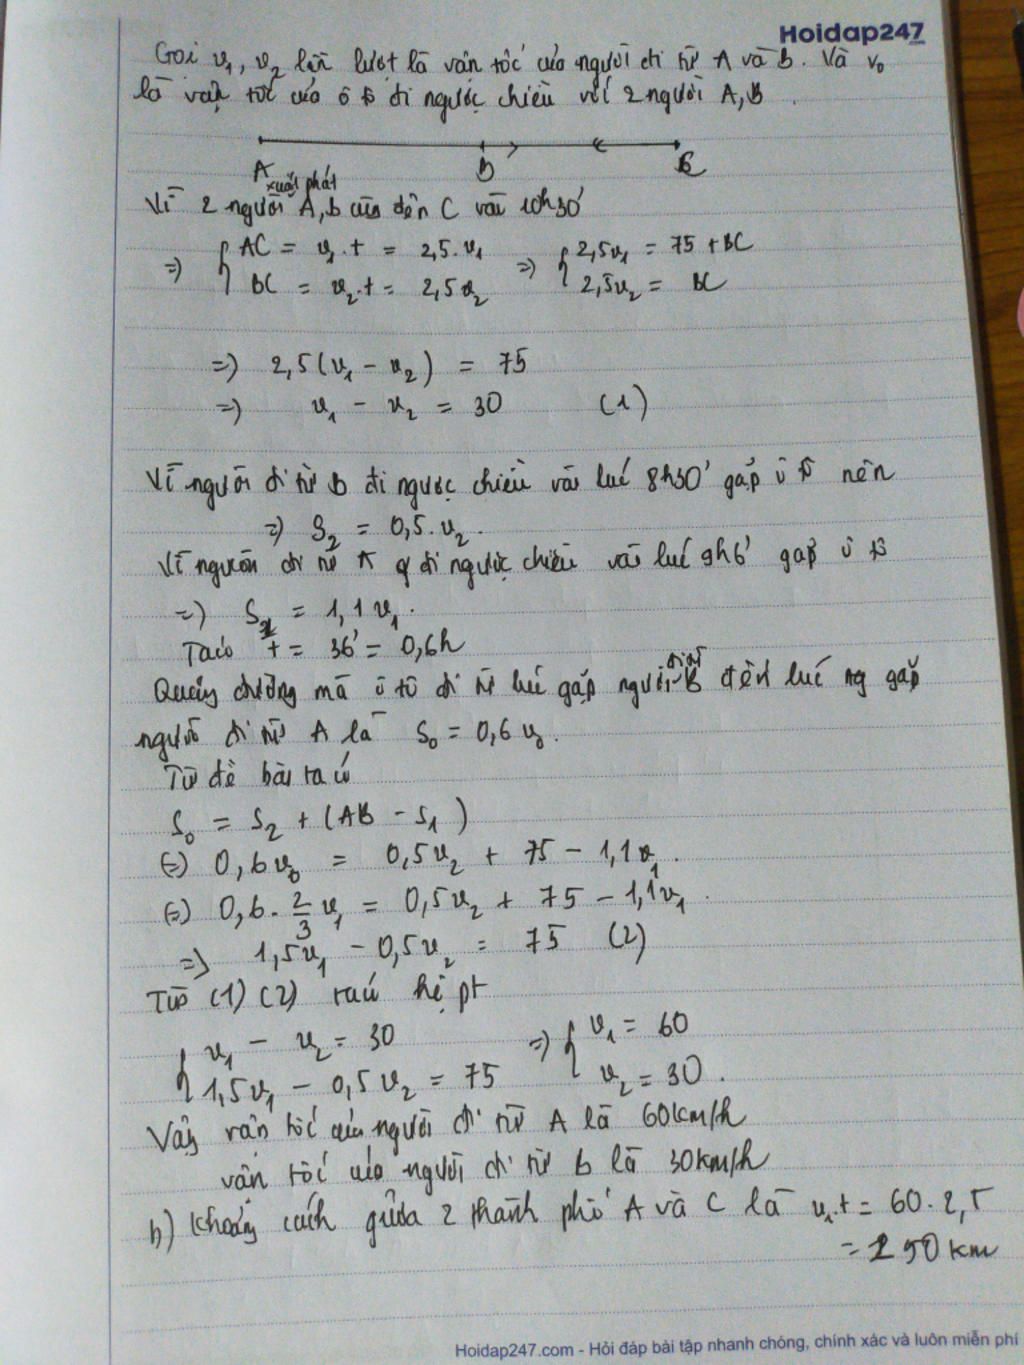 Hoidap247
Gọi v₁, v₂ lần lượt là vân tốc của người đi từ A và B. Và v₀
là vận tốc của ô tô đi ngược chiều với 2 người A, B.
A B C
xuất phát
Vì 2 người A, B cùng đến C vào 10h30'
=> { AC = v₁.t = 2,5.v₁ => { 2,5v₁ = 75 + BC
BC = v₂.t = 2,5v₂ 2,5v₂ = BC
=> 2,5(v₁ - v₂) = 75
=> v₁ - v₂ = 30 (1)
Vì người đi từ B đi ngược chiều vào lúc 8h30' gặp ô tô nên
=> S₂ = 0,5.v₂.
Vì người đi từ A đi ngược chiều vào lúc 9h6' gặp ô tô
=> S₁ = 1,1v₁.
Ta có t = 36' = 0,6h
Quãng đường mà ô tô đi từ lúc gặp người đi từ B đến lúc gặp
người đi từ A là S₀ = 0,6v₀.
Từ đề bài ta có
S₀ = S₂ + (AB - S₁)
(=) 0,6v₀ = 0,5v₂ + 75 - 1,1v₁.
(=) 0,6. 2/3 v₁ = 0,5v₂ + 75 - 1,1v₁.
=> 1,5v₁ - 0,5v₂ = 75 (2)
Từ (1) (2) ta có hệ pt
{ v₁ - v₂ = 30 => { v₁ = 60
1,5v₁ - 0,5v₂ = 75 v₂ = 30.
Vậy vận tốc của người đi từ A là 60km/h
vận tốc của người đi từ B là 30km/h
b) Khoảng cách giữa 2 thành phố A và C là v₁.t = 60.2,5
= 150km
Hoidap247.com - Hỏi đáp bài tập nhanh chóng, chính xác và luôn miễn phí